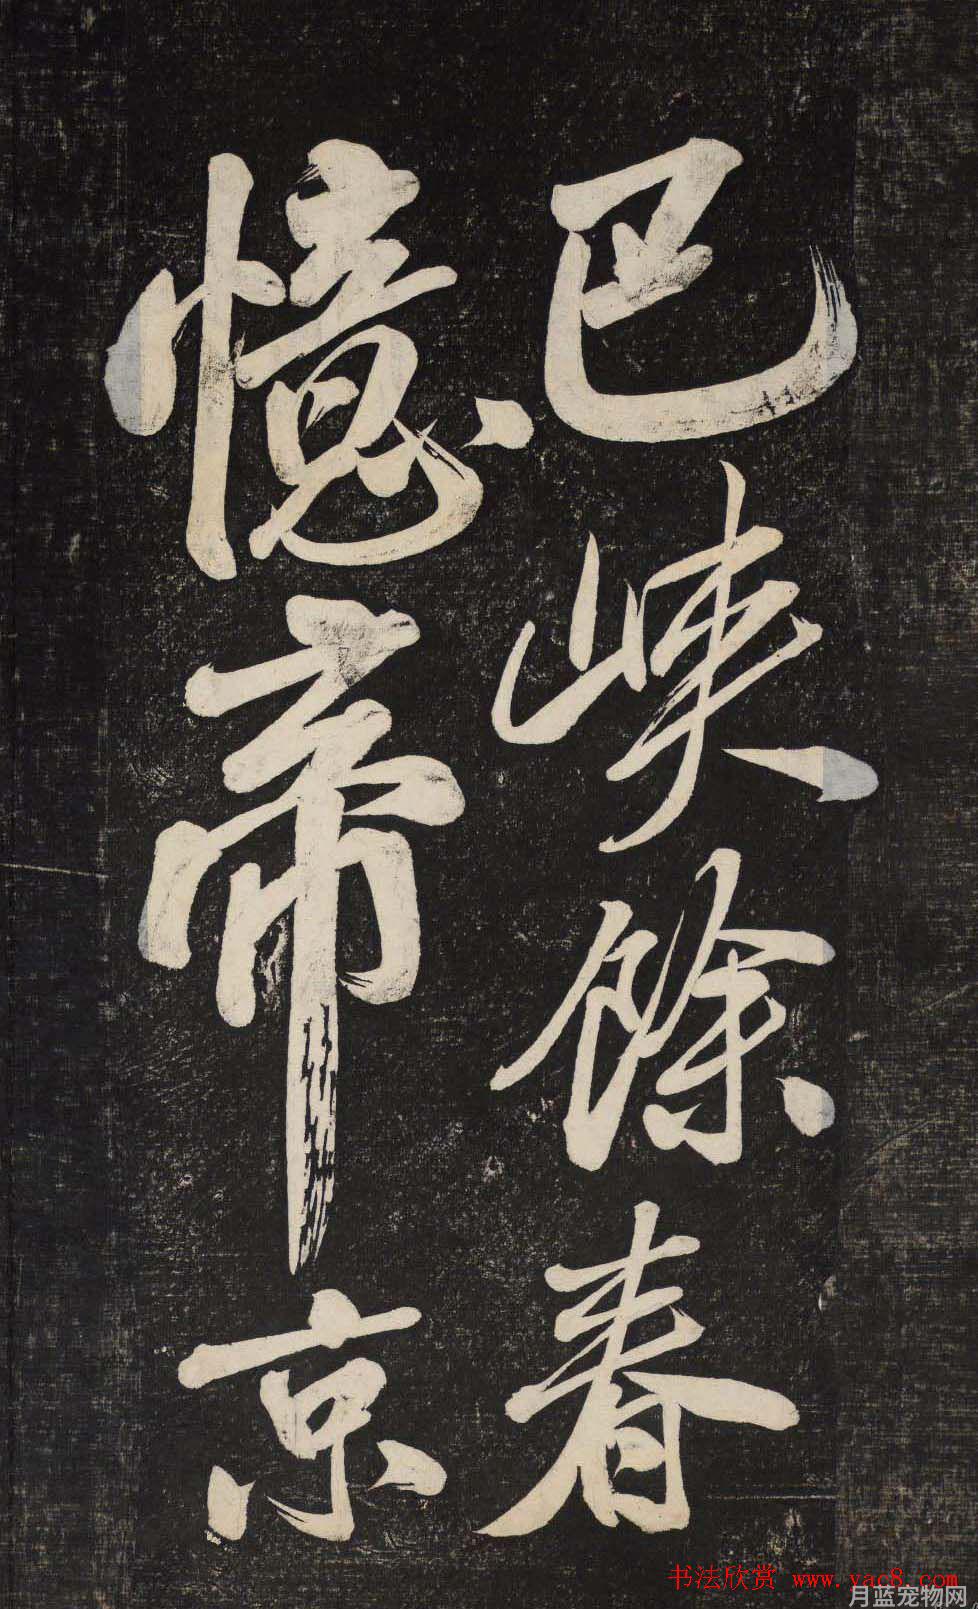 巴峽餘春
憶帝京
书法欣赏 www.yac8.com
月蓝宠物网